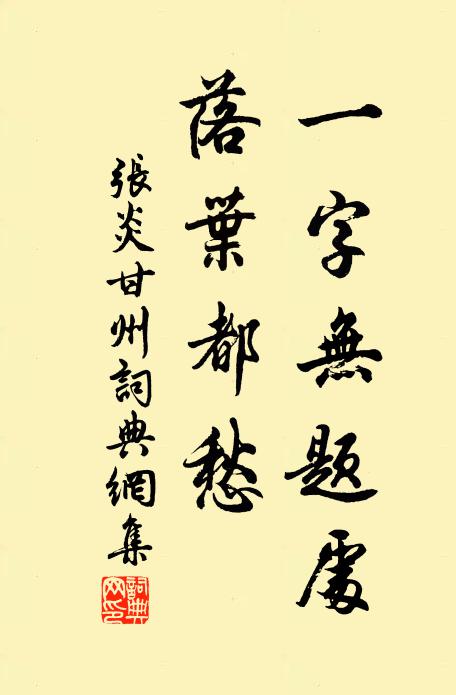 一字無題處
落葉都愁
張炎甘州詞典網集
詞典網印